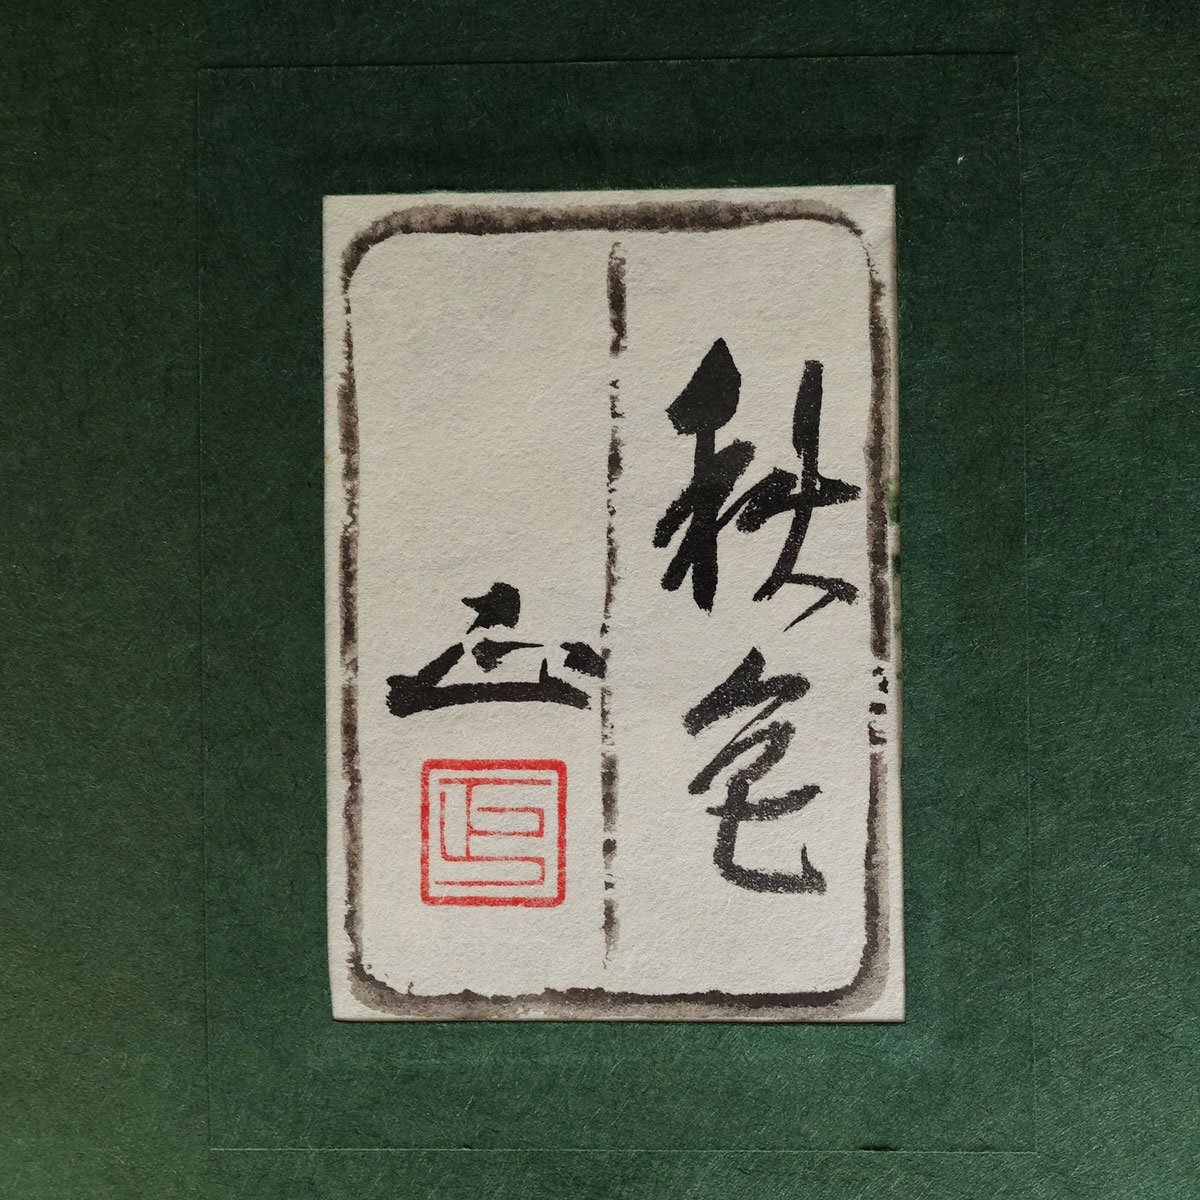 秋色
正